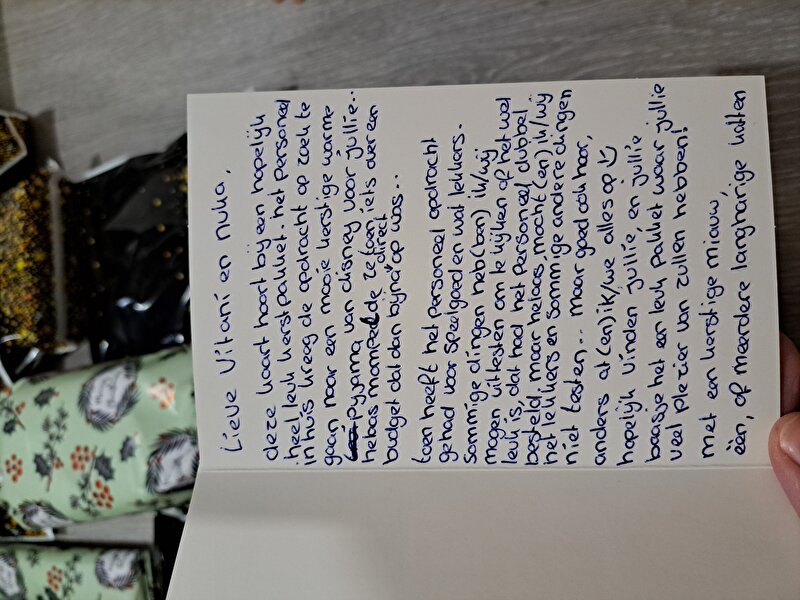 Lieve Vitani en Nuka,
deze kaart hoort bij een hopelijk
heel leuk kerstpakket. het personeel
in huis kreeg de opdracht op zoek te
gaan naar een mooie kerstige warme
pyjama van disney voor jullie..
helaas mompelde ze (een iets over een
budget dat dan bijna direct op was...
toen heeft het personeel opdracht
gehad voor speelgoed en wat lekkers.
Sommige dingen heb(ben) ik/wij
mogen uittesten om te kijken of het wel
leuk is, dat had het personeel dubbel
besteld, maar helaas, mocht(en) ik/wij
het lekkers en sommige andere dingen
niet testen.. maar goed ook hoor,
anders at(en) ik/we alles op
hopelijk vinden jullie, en jullie
baasje het een leuk pakket waar jullie
veel plezier van zullen hebben!
met een kerstige miauw,
één, of meerdere langharige katten